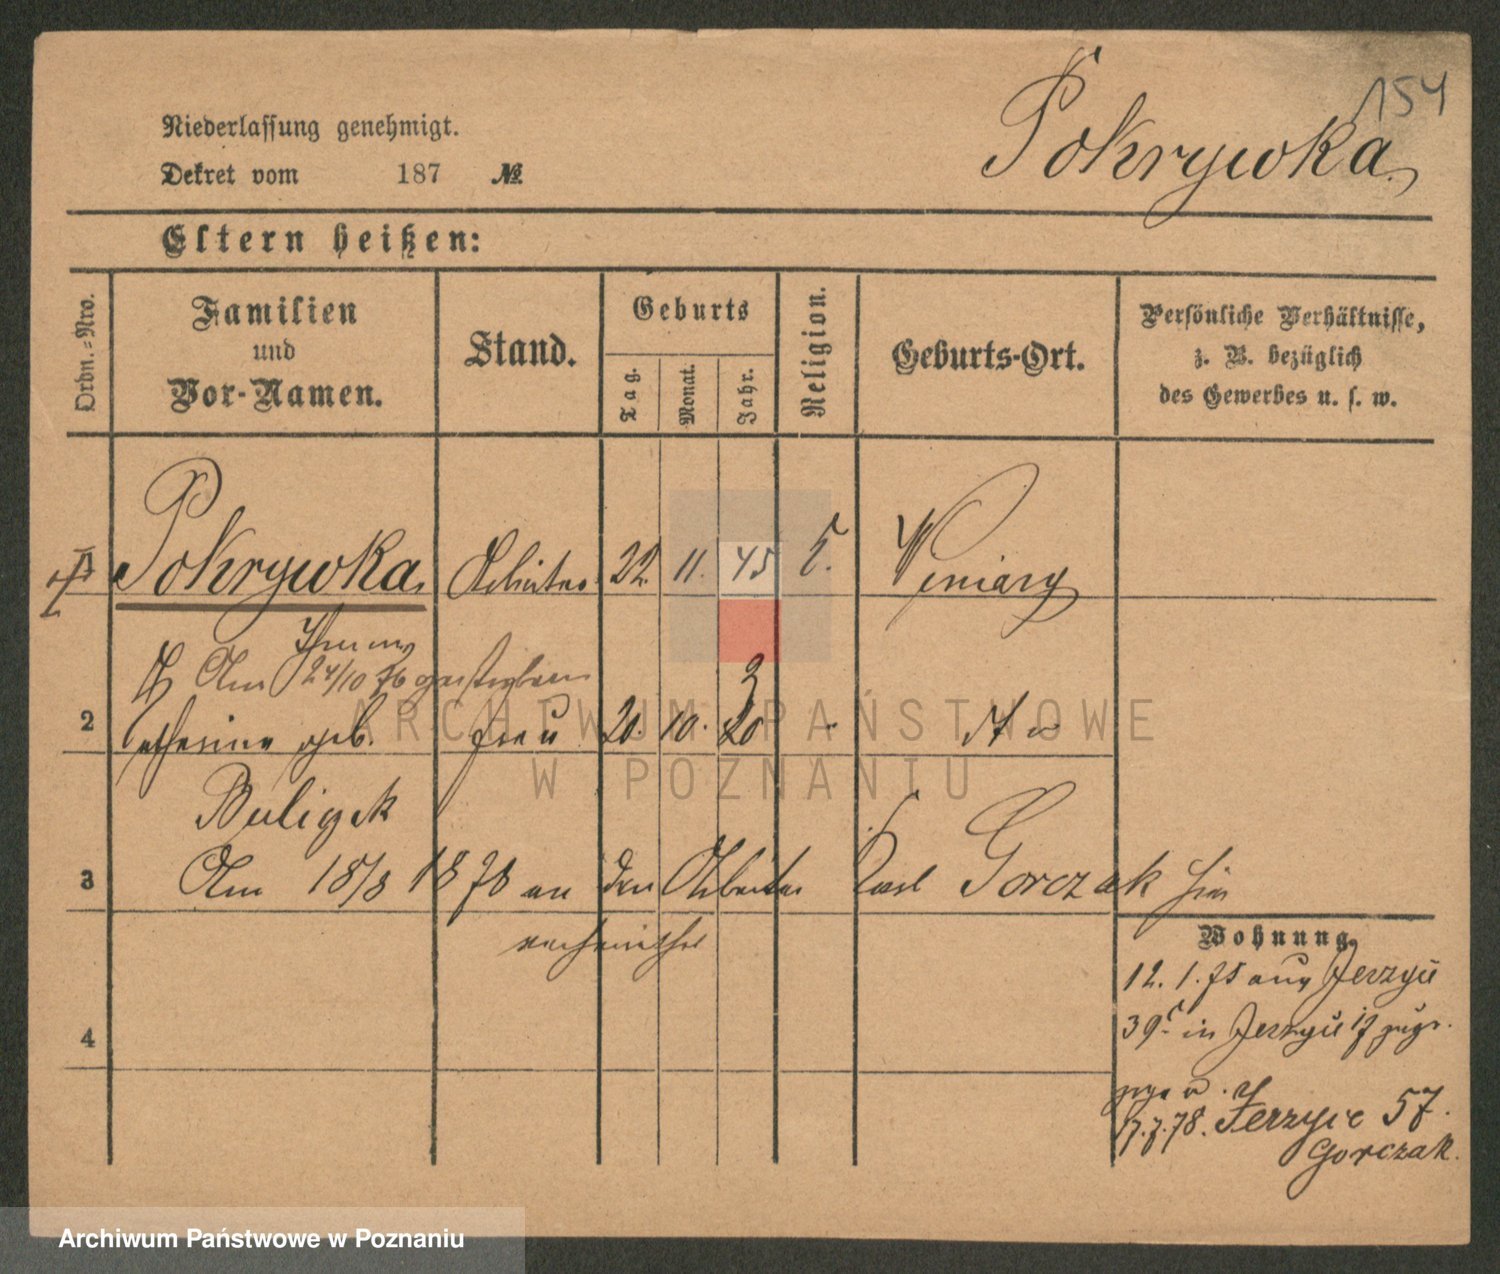 154
Pokrywka
Niederlassung genehmigt.
Dekret vom 187 №
Eltern heißen:
Ordn.-Nro.
Familien
und
Vor-Namen.
Stand.
Geburts
Tag.
Monat.
Jahr.
Religion.
Geburts-Ort.
Persönliche Verhältnisse,
z. B. bezüglich
des Gewerbes u. s. w.
Pokrywka Arbeiter 22. 11. 45 Winiary
Am 24/10 76 gestorben
2 Catharina geb. Frau 20. 10. 30
Buligak
3 Am 18/8 1878 an den Arbeiter Karl Gorczak hier
verheirathet
Wohnung.
12. 1. 78 aus Jerzyce
39 in Jerzyce
4
17. 7. 78. Jerzyce 57.
Gorczak.
ARCHIWUM PAŃSTWOWE
W POZNANIU
Archiwum Państwowe w Poznaniu